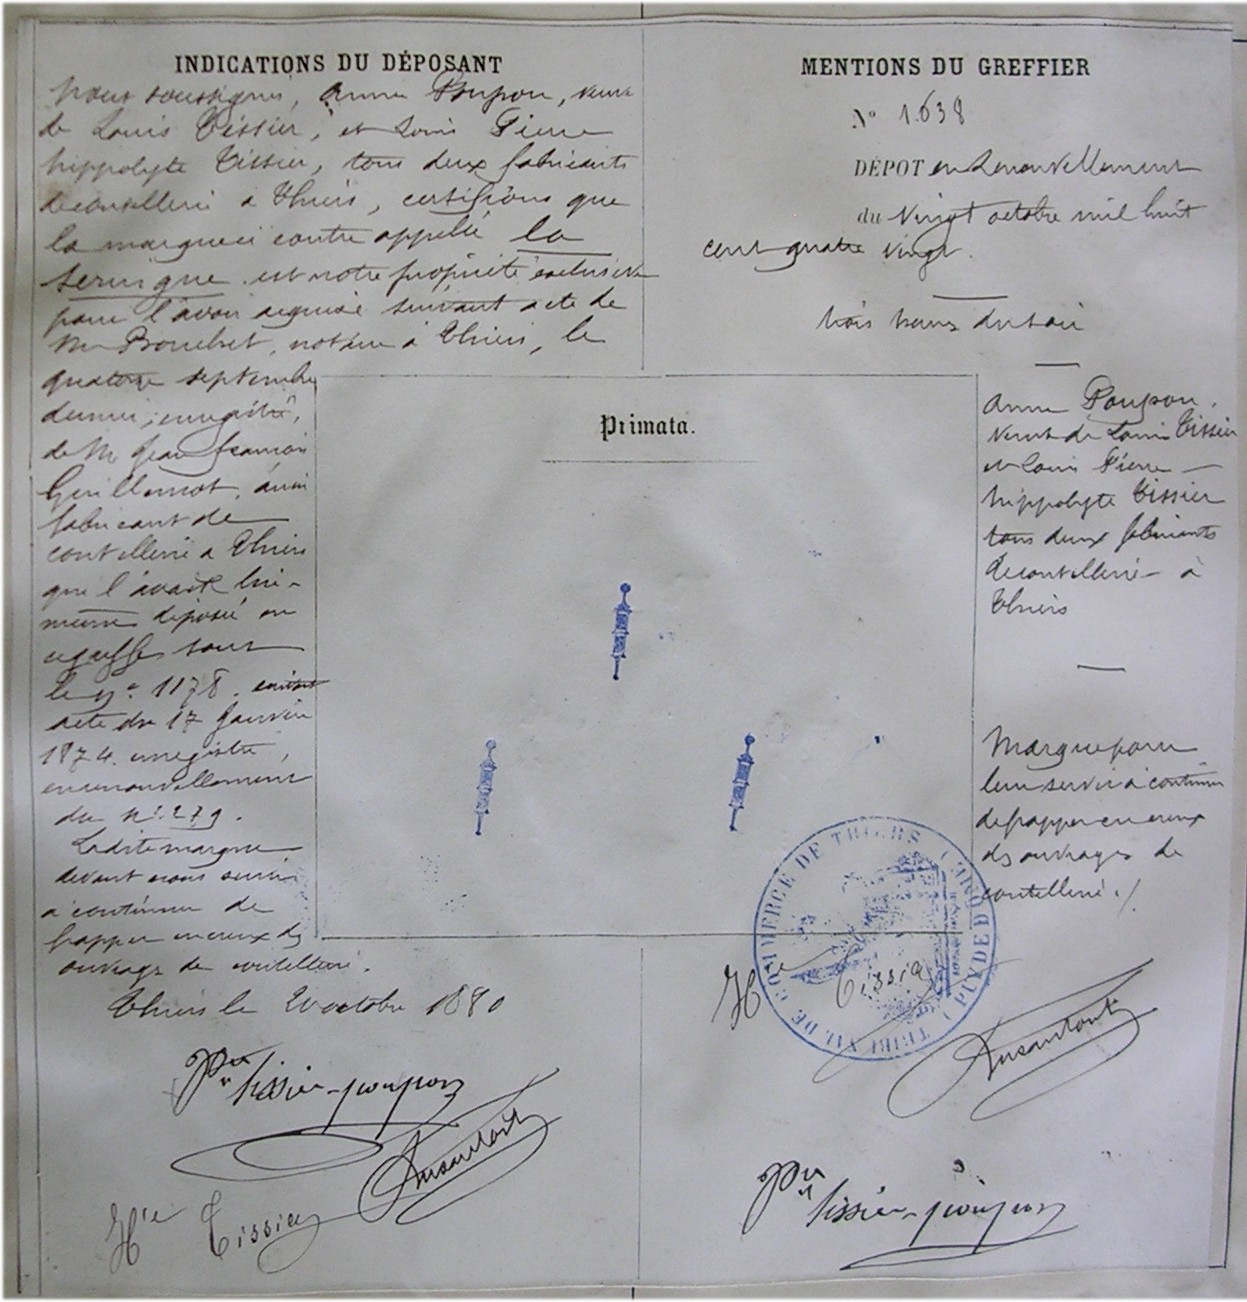 INDICATIONS DU DÉPOSANT
Nous soussignés, Anne Poupon, veuve
de Louis Tissier, et Louis Pierre
hippolyte Tissier, tous deux fabricants
de coutellerie à Thiers, certifions que
la marque ci contre appelée la
seringue est notre propriété exclusive
pour l'avoir acquise suivant acte de
Me Bouchet, notaire à Thiers, le
quatorze septembre
dernier, enregistré,
de M Jean francois
Guillemot, aussi
fabricant de
coutellerie à Thiers
qui l'avait lui-
même déposée au
greffe sous
le no 1178. suivant
acte du 17 Janvier
1874. enregistré,
en renouvellement
du No. 279.
Ladite marque
devant nous servir
à continuer de
frapper en creux des
ouvrages de coutellerie.
Thiers le 20 octobre 1880
Ve Tissier-poupon
Ausautoit
Hte Tissier
MENTIONS DU GREFFIER
No 1.638
DÉPOT en Renouvellement
du Vingt octobre mil huit
cent quatre vingt.
trois heures du soir
Anne Poupon,
veuve de Louis Tissier
et Louis Pierre
hippolyte Tissier
tous deux fabricants
de coutellerie à
Thiers
Marque pour
leur servir à continuer
de frapper en creux
des ouvrages de
coutellerie./.
Primata.
TRIBUNAL DE COMMERCE DE THIERS (PUY DE D
Hte Tissier
Ve Tissier-poupon